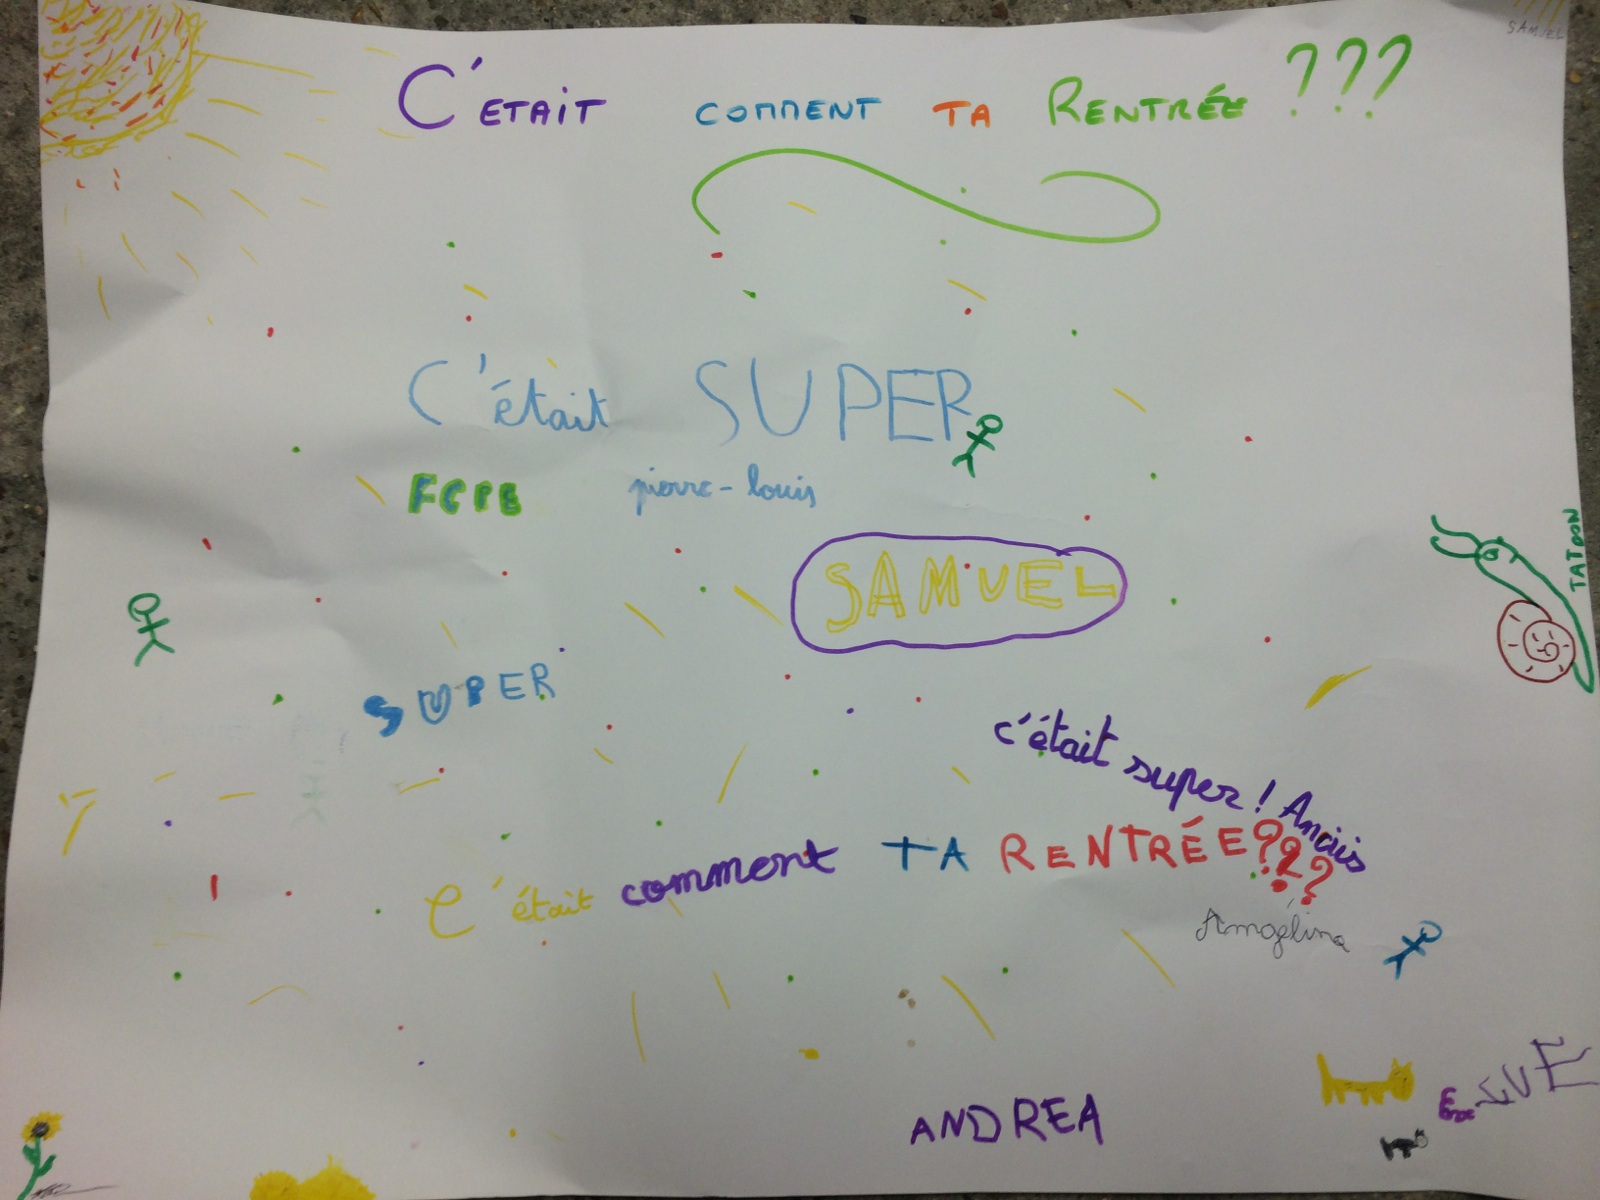 SAMUEL
C'ETAIT COMMENT TA RENTRÉE ???
C'était SUPER
FCPE pierre-louis
SAMUEL
TATOON
SUPER
c'était super ! Anaïs
C'était comment TA RENTRÉE???
Angélina
ANDREA